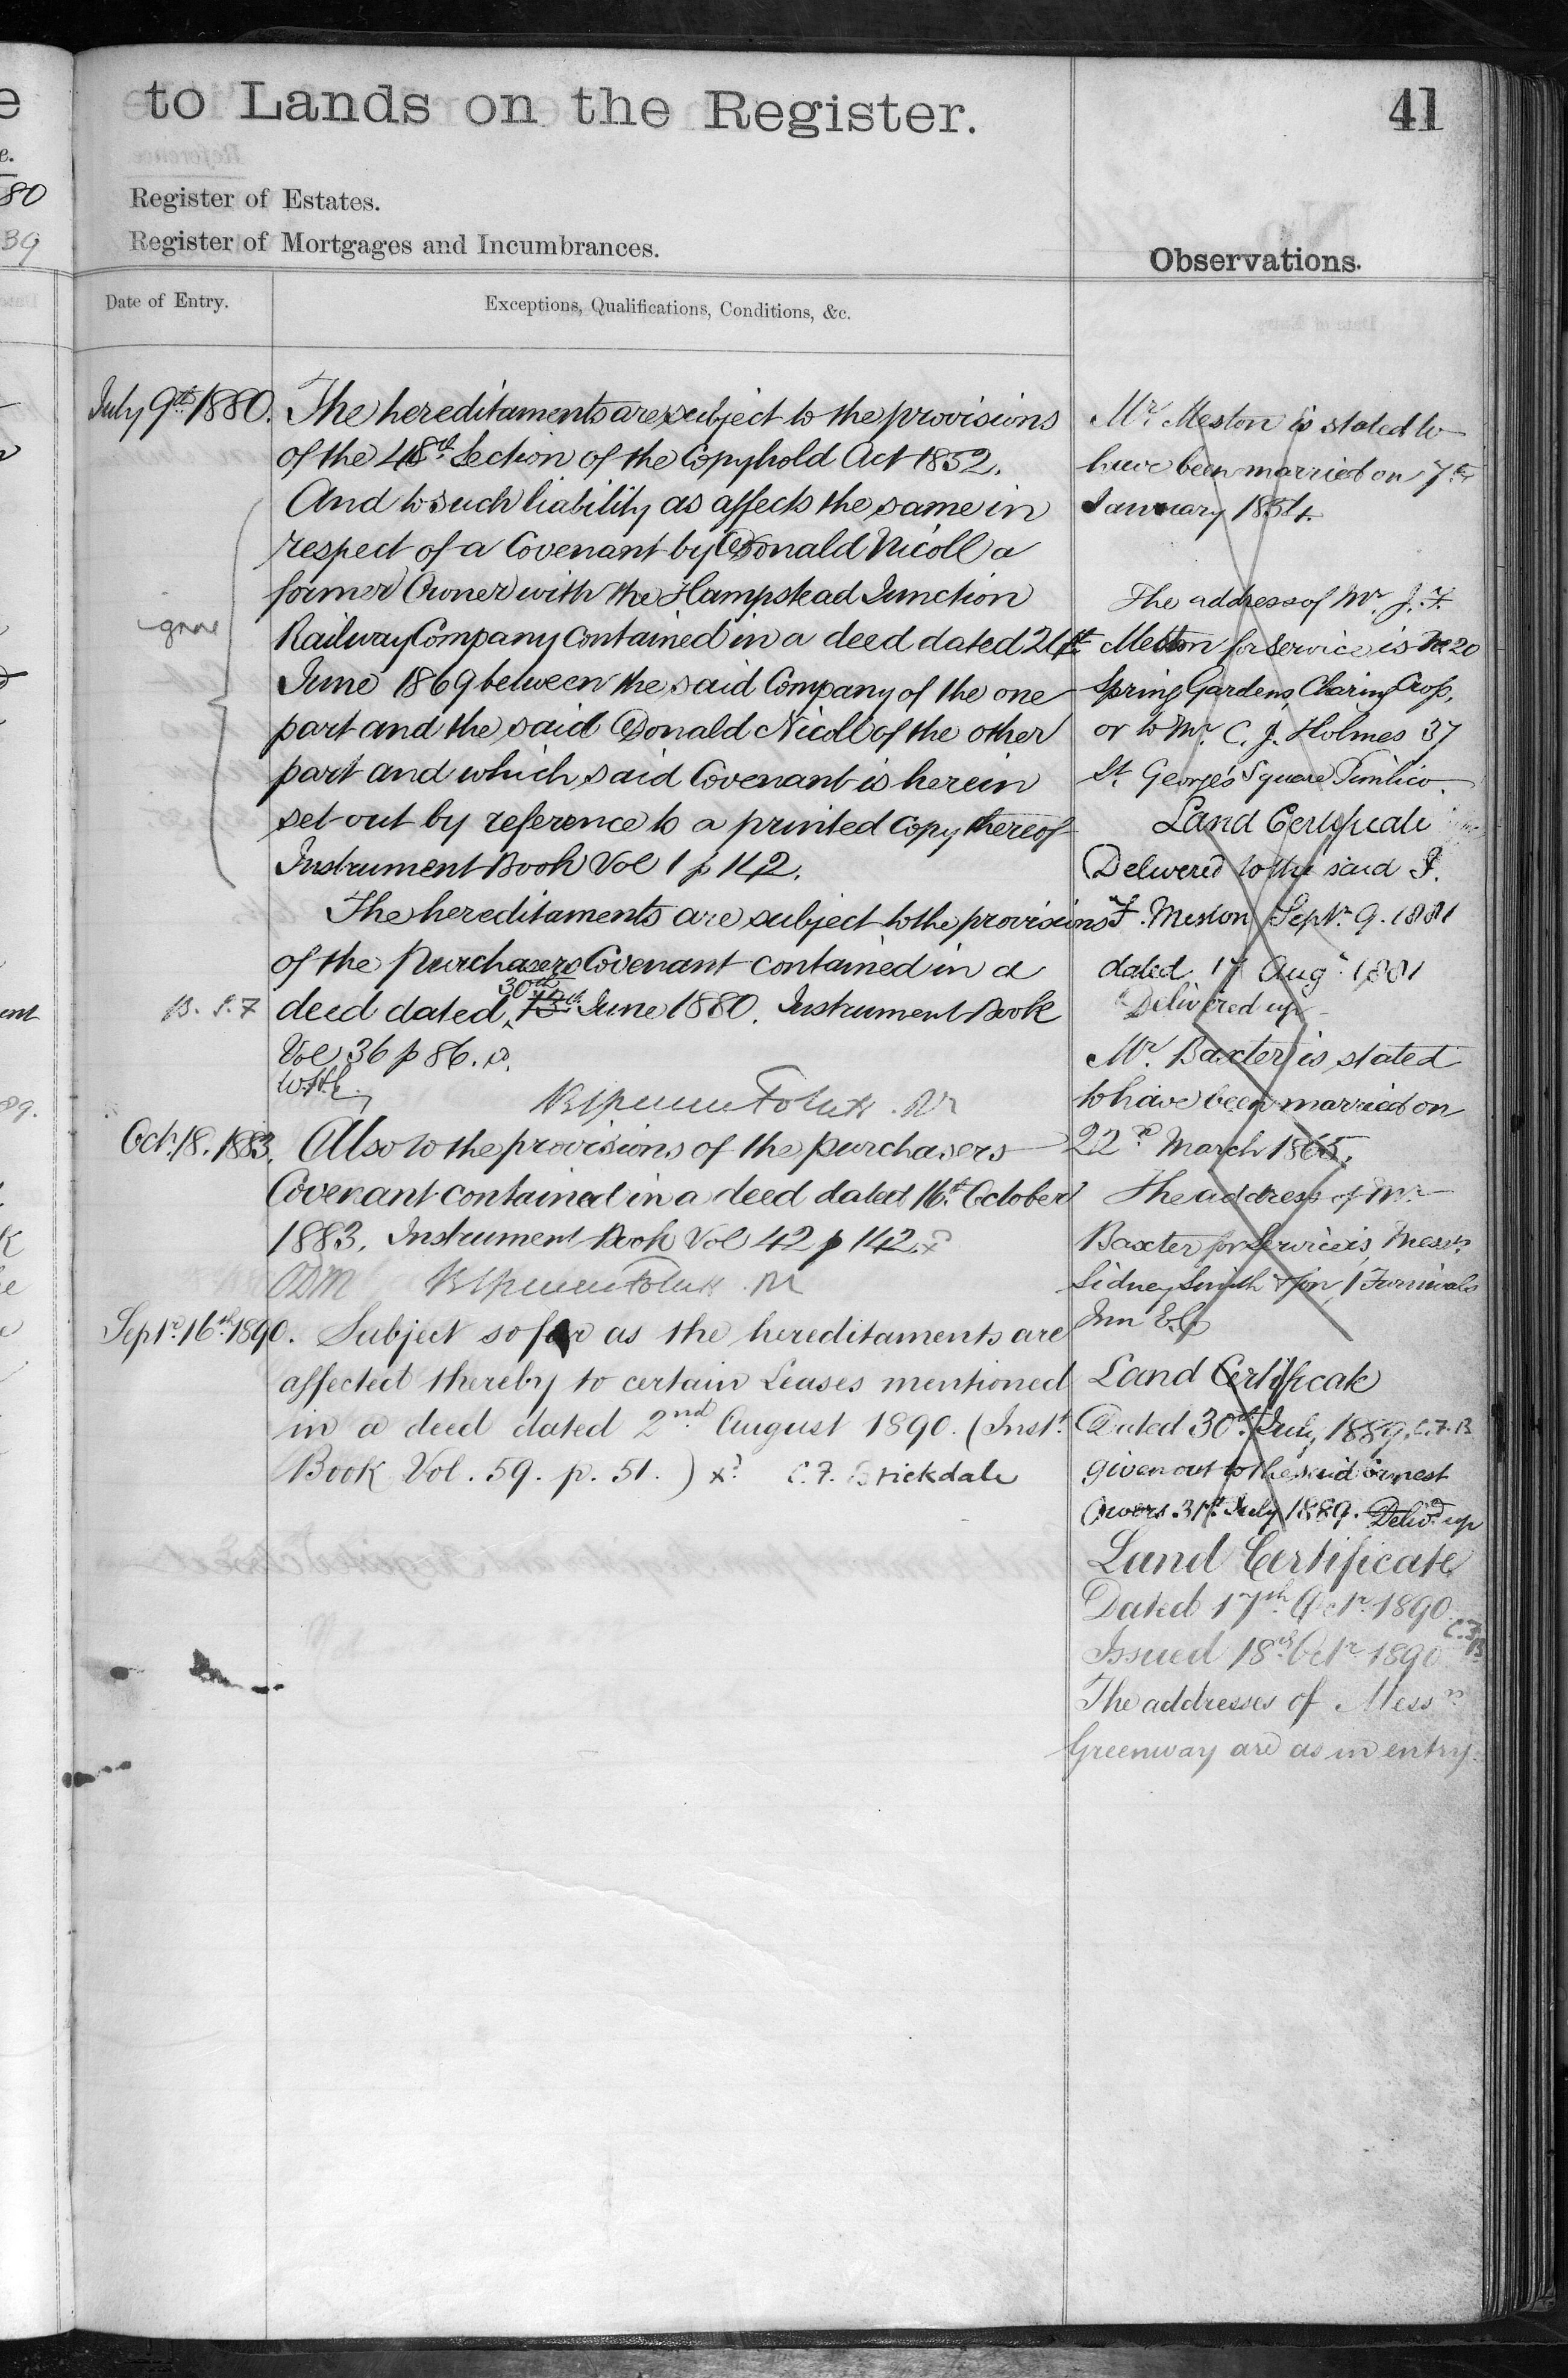 to Lands on the Register.
41
Register of Estates.
Register of Mortgages and Incumbrances.
Observations.
Date of Entry.
Exceptions, Qualifications, Conditions, &c.
July 9th 1880. The hereditaments are subject to the provisions
of the 48th Section of the Copyhold Act 1852.
And to such liability as affects the same in
respect of a Covenant by Donald Nicoll a
former Owner with the Hampstead Junction
Railway Company contained in a deed dated 21st
June 1869 between the said Company of the one
part and the said Donald Nicoll of the other
part and which said Covenant is herein
set out by reference to a printed Copy thereof
Instrument Book Vol 1 p 142.
The hereditaments are subject to the provisions
of the purchasers Covenant contained in a
30th
B. S. 7 deed dated June 1880. Instrument Book
Vol 36 p 86.
Octr. 18. 1883. Also to the provisions of the purchasers
Covenant contained in a deed dated 16th October
1883. Instrument Book Vol 42 p 142.
Septr. 16th 1890. Subject so far as the hereditaments are
affected thereby to certain Leases mentioned
in a deed dated 2nd August 1890. (Inst.
Book Vol. 59. p. 51.) C. F. Brickdale
Mr. Meston is stated to
have been married on 7th
January 1854.
The address of Mr. J. F.
Meston for service is No. 20
Spring Gardens, Charing Cross,
or to Mr. C. J. Holmes 37
St. George's Square Pimlico.
Land Certificate
Delivered to the said J.
F. Meston Septr. 9. 1881
dated 17 Augt. 1881
Delivered up
Mr. Baxter is stated
to have been married on
22d March 1865.
The address of Mr.
Baxter for Service is, Messrs.
Sidney Smith & Son, 1 Furnivals
Inn E.C.
Land Certificate
Dated 30th July, 1889, C.F.B
given out to the said Ernest
Owers. 31st July 1889. Delivd. up
Land Certificate
Dated 17th Octr. 1890
Issued 18th Octr. 1890 C.F.B.
The addresses of Messrs
Greenway are as in entry.